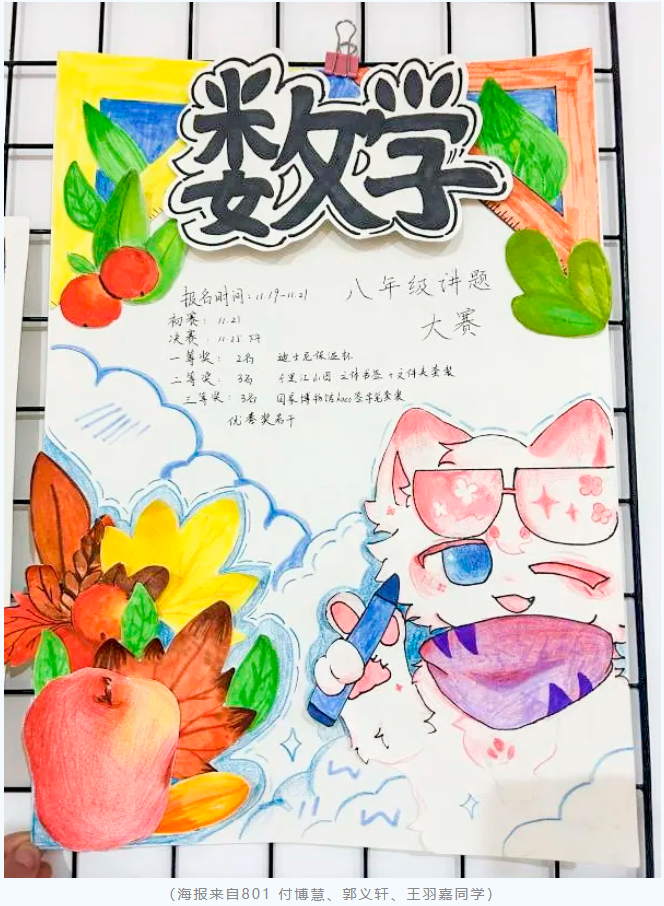 数学
八年级讲题
大赛
报名时间：11.19-11.21
初赛：11.21
决赛：11.25 下午
一等奖：2名 迪士尼保温杯
二等奖：3名 千里江山图 立体书签+文件夹套装
三等奖：3名 国家博物馆 签字笔套装
优秀奖若干
（海报来自801 付博慧、郭义轩、王羽嘉同学）